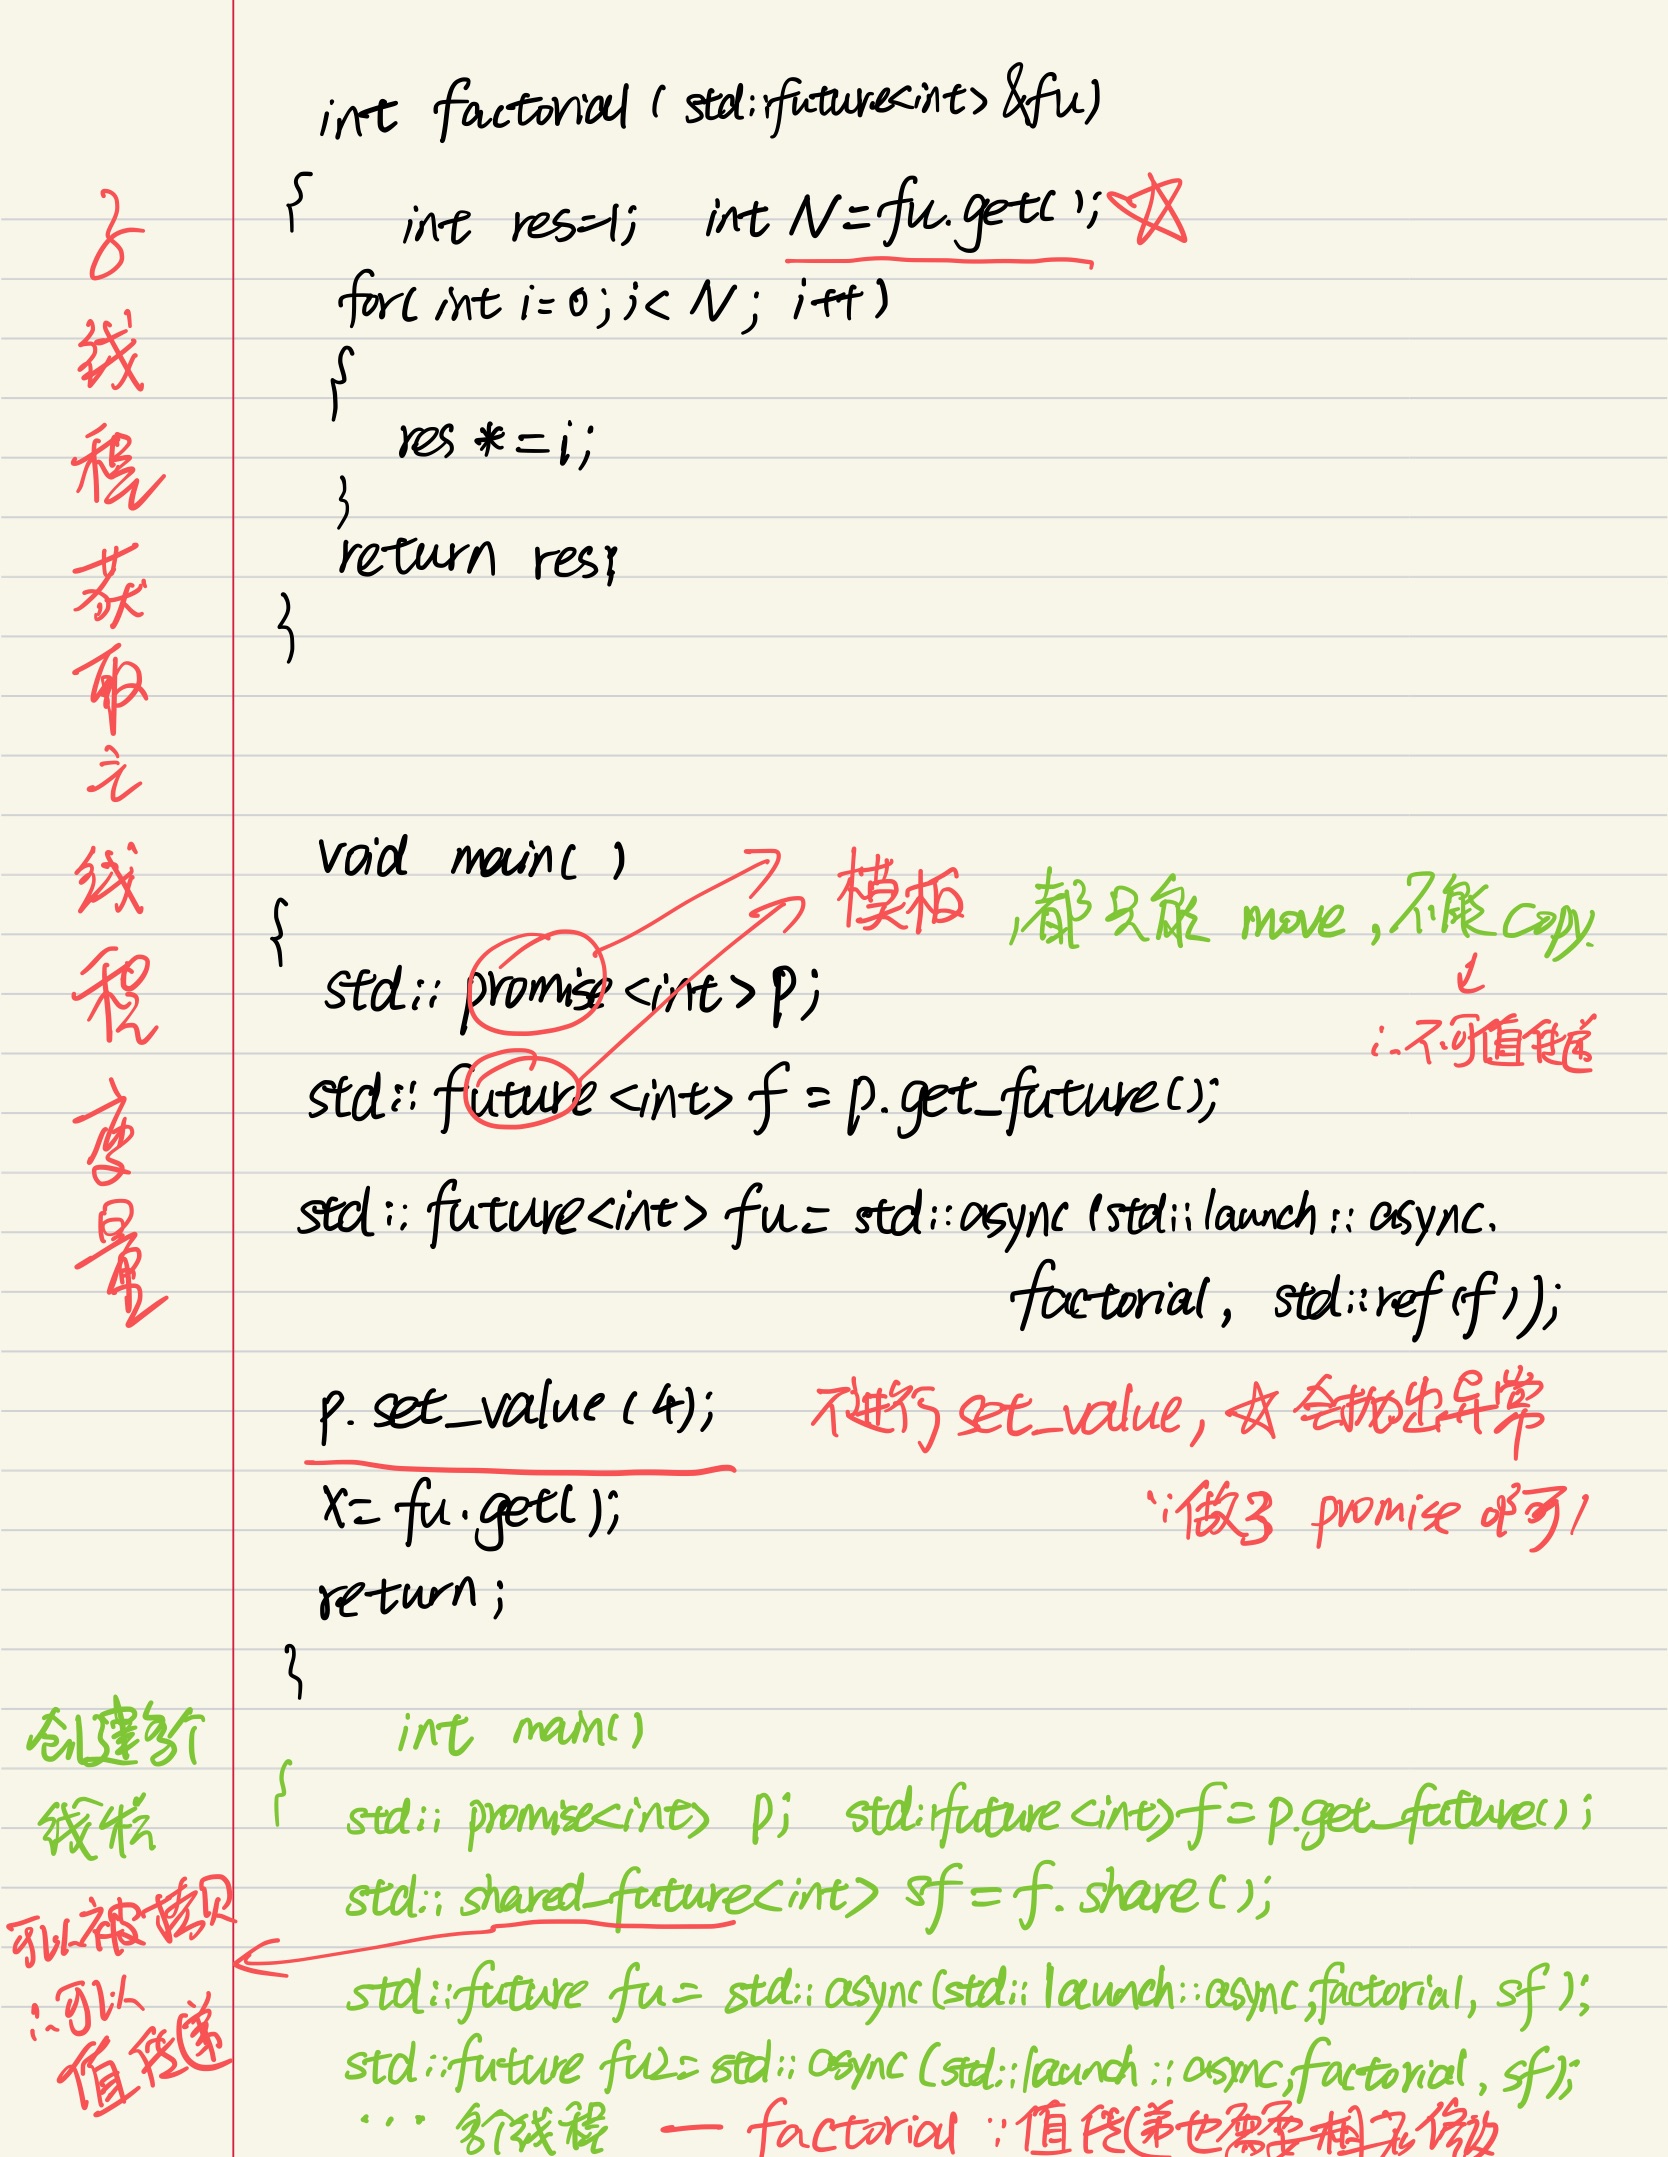 子线程获取主线程变量
int factorial ( std::future<int> &fu)
{ int res=1; int N=fu.get();
for( int i=0; i< N; i++)
{
res *=i;
}
return res;
}
void main( )
{
模板 ,都只能 move ,不能 copy.
std:: promise <int> p;
∴不可值传递
std:: future <int> f = p.get_future();
std:: future<int> fu= std::async (std::launch :: async.
factorial, std::ref(f));
p. set_value (4); 不进行 set_value, 会抛出异常
x= fu.get();
∵做了 promise
return ;
}
创建多个线程
int main()
{
std:: promise<int> p; std::future <int> f = p.get_future();
std:: shared_future<int> sf = f. share();
可以被拷贝
∴可以值传递
std::future fu= std:: async (std:: launch::async,factorial, sf );
std::future fu2= std:: async (std::launch :: async,factorial, sf);
... 多个线程 — factorial ∵值传递也需要相应修改